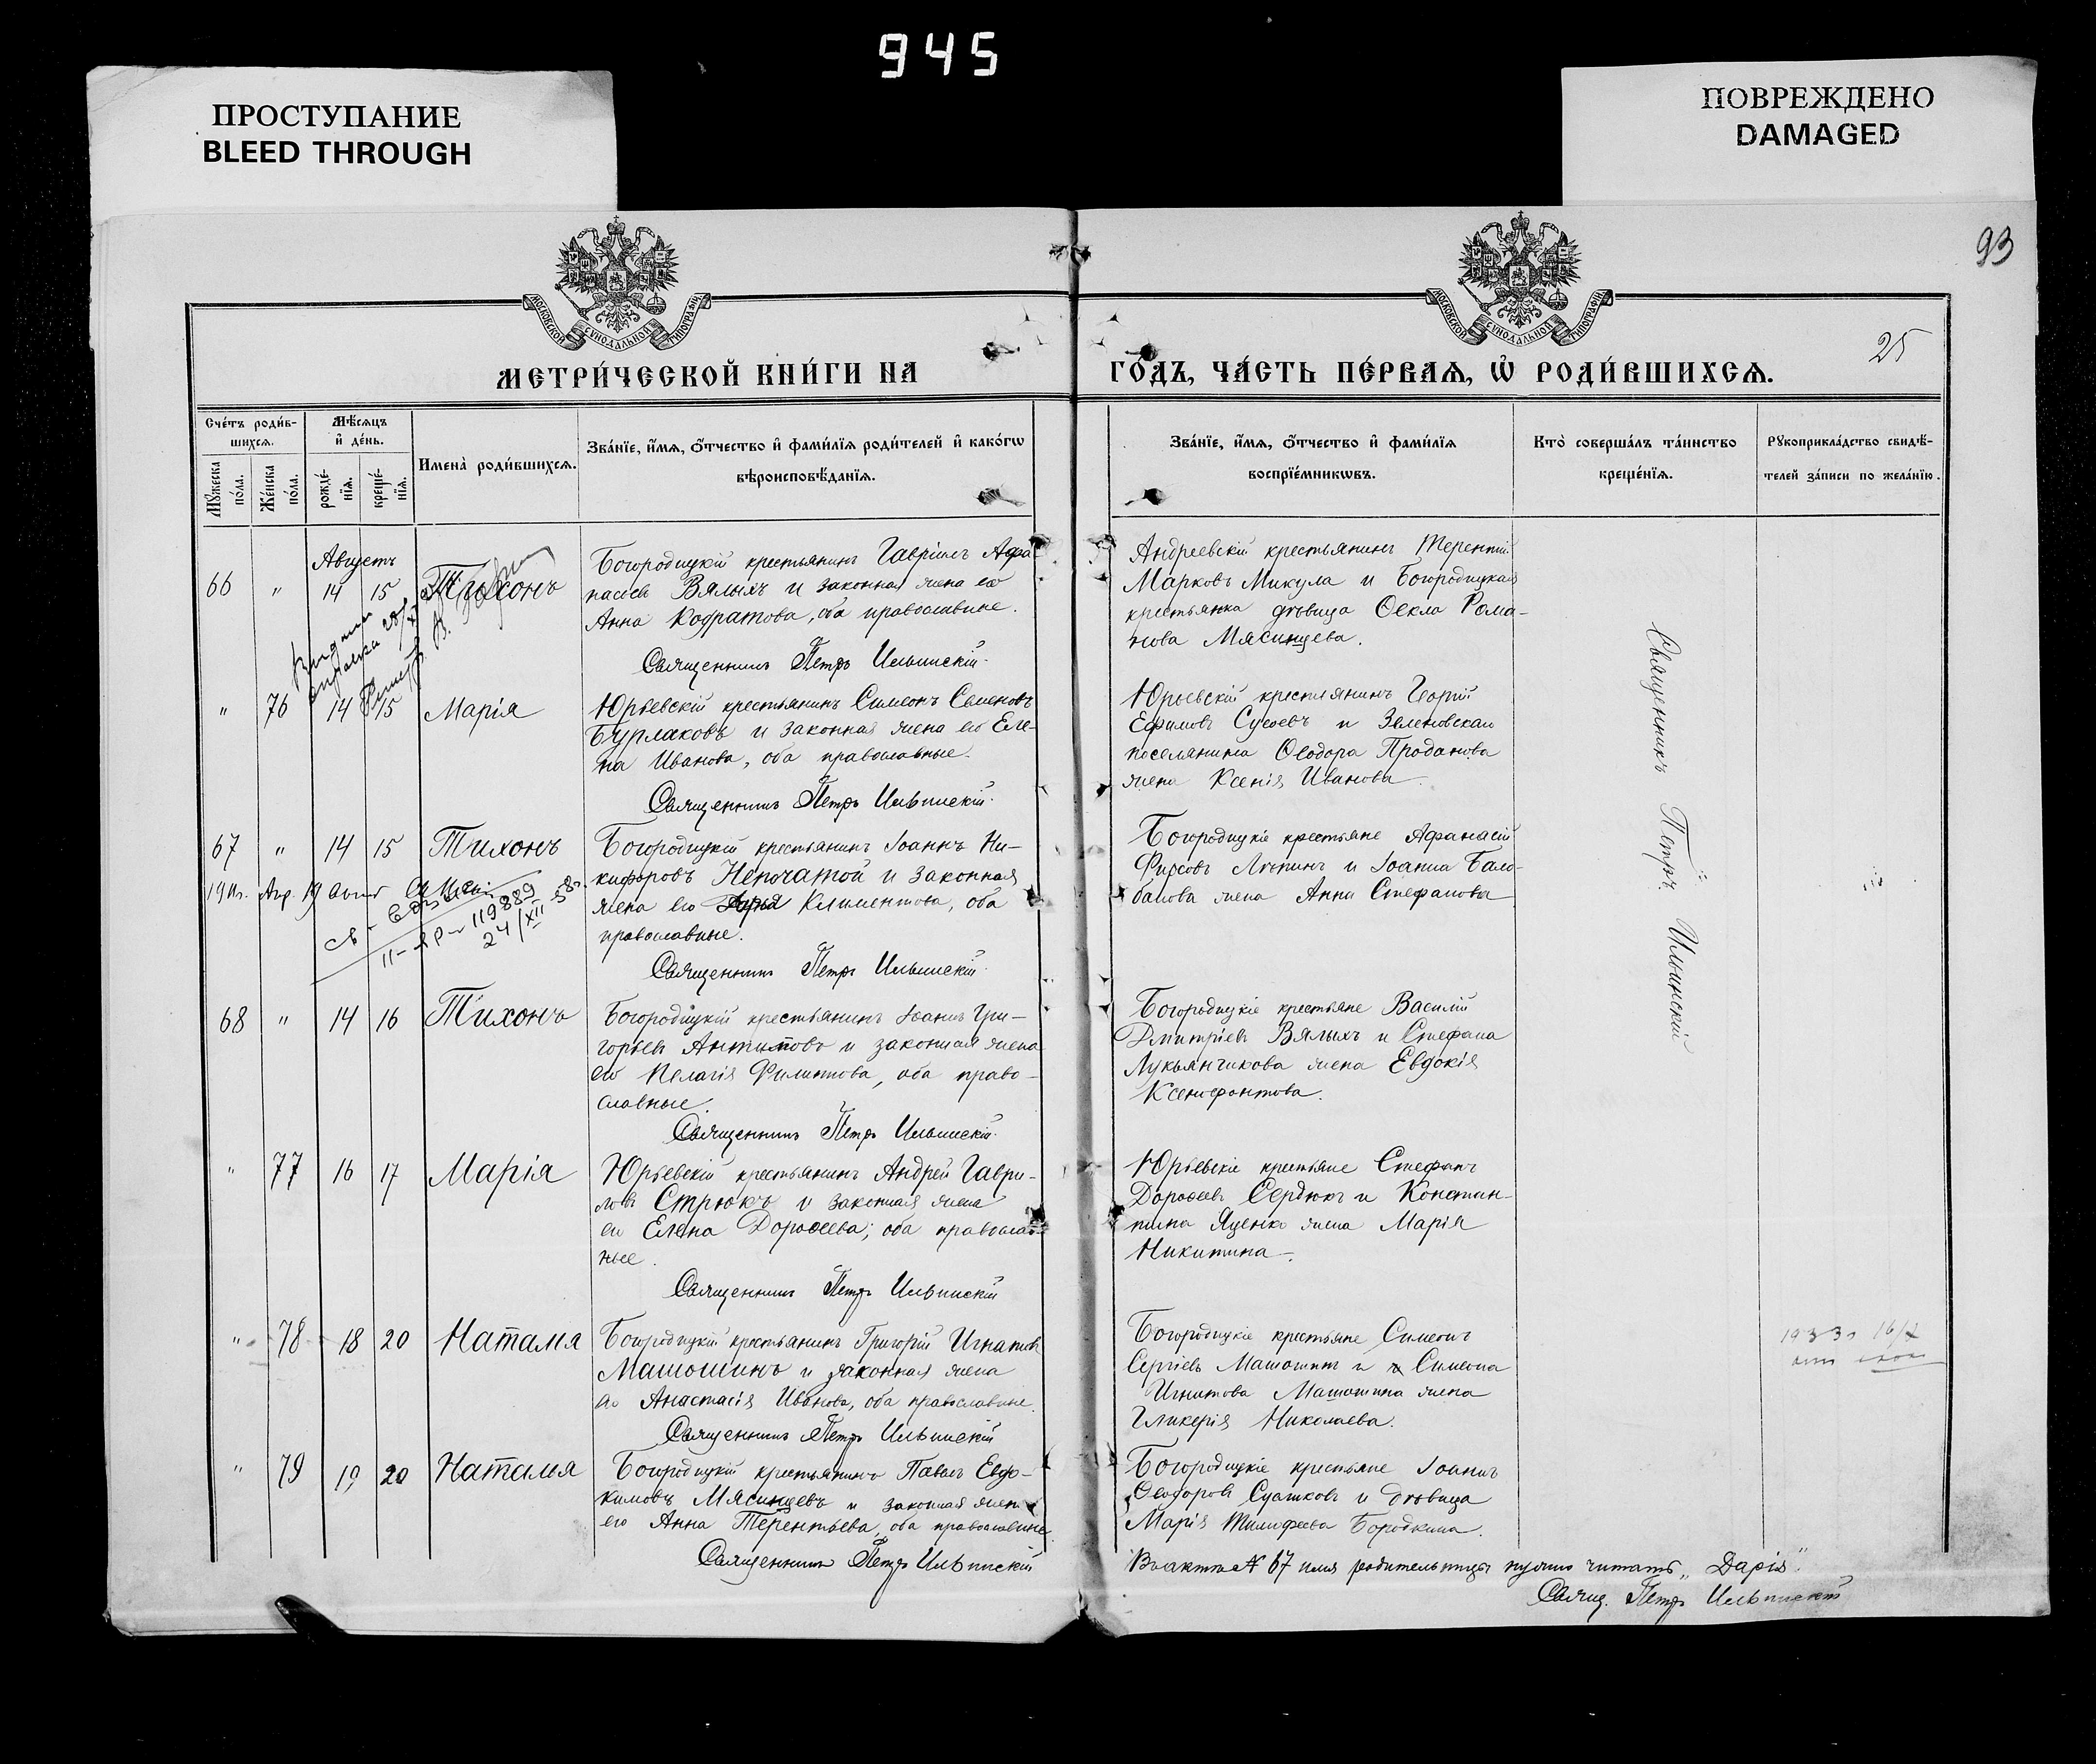 945
ПРОСТУПАНИЕ
BLEED THROUGH
ПОВРЕЖДЕНО
DAMAGED
93
25
МОСКОВСКОЙ СѴНОДАЛЬНОЙ ТИПОГРАФІИ
МОСКОВСКОЙ СѴНОДАЛЬНОЙ ТИПОГРАФІИ
МЕТРИ́ЧЕСКОЙ КНИ́ГИ НА
ГО́ДЪ, ЧА́СТЬ ПЕ́РВАѦ, Ѡ҆ РОДИ́ВШИХСѦ.
Сче́тъ роди́в-
шихсѧ.
Мѣ́сѧцъ
и҆ де́нь.
Мꙋ́жеска
по́ла.
Же́нска
по́ла.
рожде́-
нїѧ.
креще́-
нїѧ.
Имена̀ роди́вшихсѧ.
Зва́нїе, и҆́мѧ, ѻ҆́тчество и҆ фами́лїѧ роди́телей и҆ како́гѡ
вѣроисповѣ́данїѧ.
Зва́нїе, и҆́мѧ, ѻ҆́тчество и҆ фами́лїѧ
воспрїе́мникѡвъ.
Кто̀ соверша́лъ та́инство
креще́нїѧ.
Рꙋкоприкла́дство свидѣ́-
телей за́писи по жела́нїю.
Августъ
66 " 14 15 Тихонъ
Богородицкій крестьянинъ Гавріилъ Афа-
насіевъ Вялыхъ и законная жена его
Анна Кодратова, оба православные.
Священникъ Петръ Ильинскій.
Андреевскій крестьянинъ Терентій
Марковъ Микула и Богородицкая
крестьянка дѣвица Ѳекла Рома-
нова Мясищева.
" 76 14 15 Марія
Юрьевскій крестьянинъ Симеонъ Семеновъ
Бурлаковъ и законная жена его Еле-
на Иванова, оба православные.
Священникъ Петръ Ильинскій.
Юрьевскій крестьянинъ Георгій
Ефимовъ Сусоевъ и Зеленовская
поселянина Ѳеодора Проданова
жена Ксенія Иванова.
67 " 14 15 Тихонъ
Богородицкій крестьянинъ Іоаннъ Ни-
кифоровъ Непочатой и законная
жена его Климентова, оба
православные.
Священникъ Петръ Ильинскій.
II-ЯР-№ 119889
24/XII-58г.
Богородицкіе крестьяне Афанасій
Фирсовъ Лѣпинъ и Іоанна Бало-
банова жена Анна Стефанова
68 " 14 16 Тихонъ
Богородицкій крестьянинъ Іоаннъ Гри-
горьевъ Антиповъ и законная жена
его Пелагія Филиппова, оба право-
славные.
Священникъ Петръ Ильинскій.
Богородицкіе крестьяне Василій
Дмитріевъ Вялыхъ и Стефана
Лукьянчикова жена Евдокія
Ксенофонтова.
" 77 16 17 Марія
Юрьевскій крестьянинъ Андрей Гаври-
ловъ Стрюкъ и законная жена
его Елена Дороѳеева; оба православ-
ные.
Священникъ Петръ Ильинскій
Юрьевскіе крестьяне Стефанъ
Дороѳеевъ Сердюкъ и Констан-
тина Яценко жена Марія
Никитина.
" 78 18 20 Наталія
Богородицкій крестьянинъ Григорій Игнатовъ
Машошинъ и законная жена
его Анастасія Иванова, оба православные.
Священникъ Петръ Ильинскій
Богородицкіе крестьяне Симеонъ
Сергіевъ Машошинъ и Симеона
Игнатова Машошина жена
Гликерія Николаева.
" 79 19 20 Наталья
Богородицкій крестьянинъ Павелъ Евдо-
кимовъ Мясищевъ и законная жена
его Анна Терентьева, оба православные
Священникъ Петръ Ильинскій
Богородицкіе крестьяне Іоаннъ
Ѳеодоровъ Суашковъ и дѣвица
Марія Тимофеева Бородкина.
Священникъ Петръ Ильинскій
Въ актѣ № 67 имя родительницы нужно читать „Дарія".
Свящ. Петръ Ильинскій